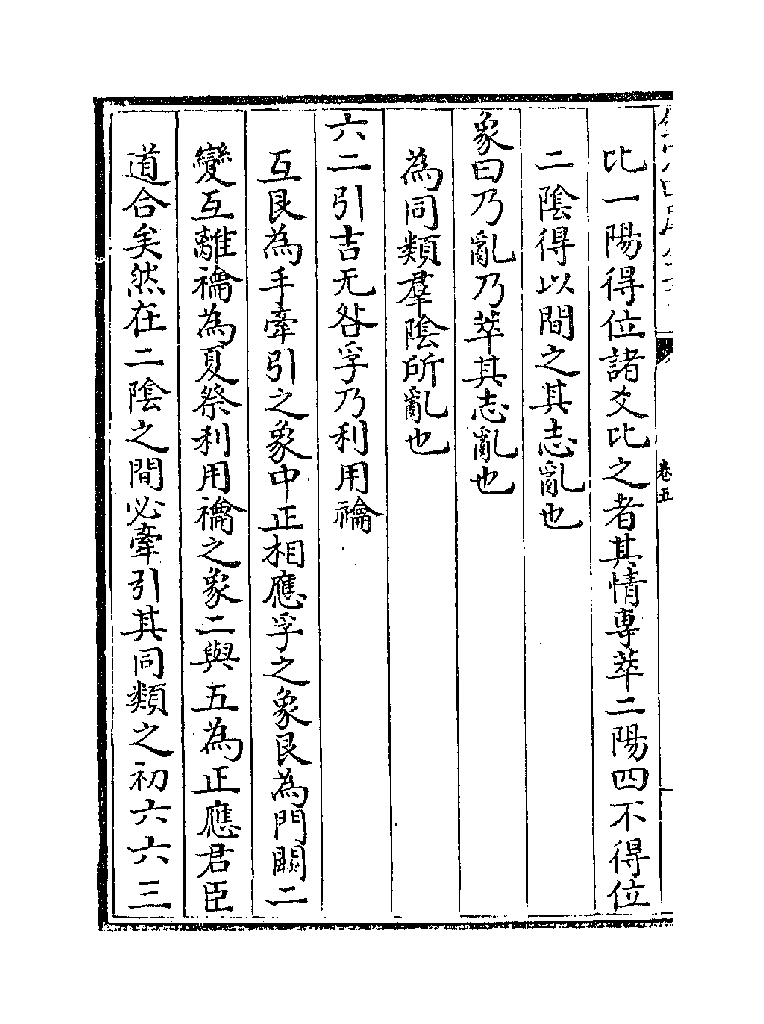 比一陽得位諸爻比之者其情專萃二陽四不得位
二陰得以間之其志亂也
象曰乃亂乃萃其志亂也
為同類羣陰所亂也
六二引吉无咎孚乃利用禴
互艮為手牽引之象中正相應孚之象艮為門闕二
變互離禴為夏祭利用禴之象二與五為正應君臣
道合矣然在二陰之間必牽引其同類之初六六三
卷五